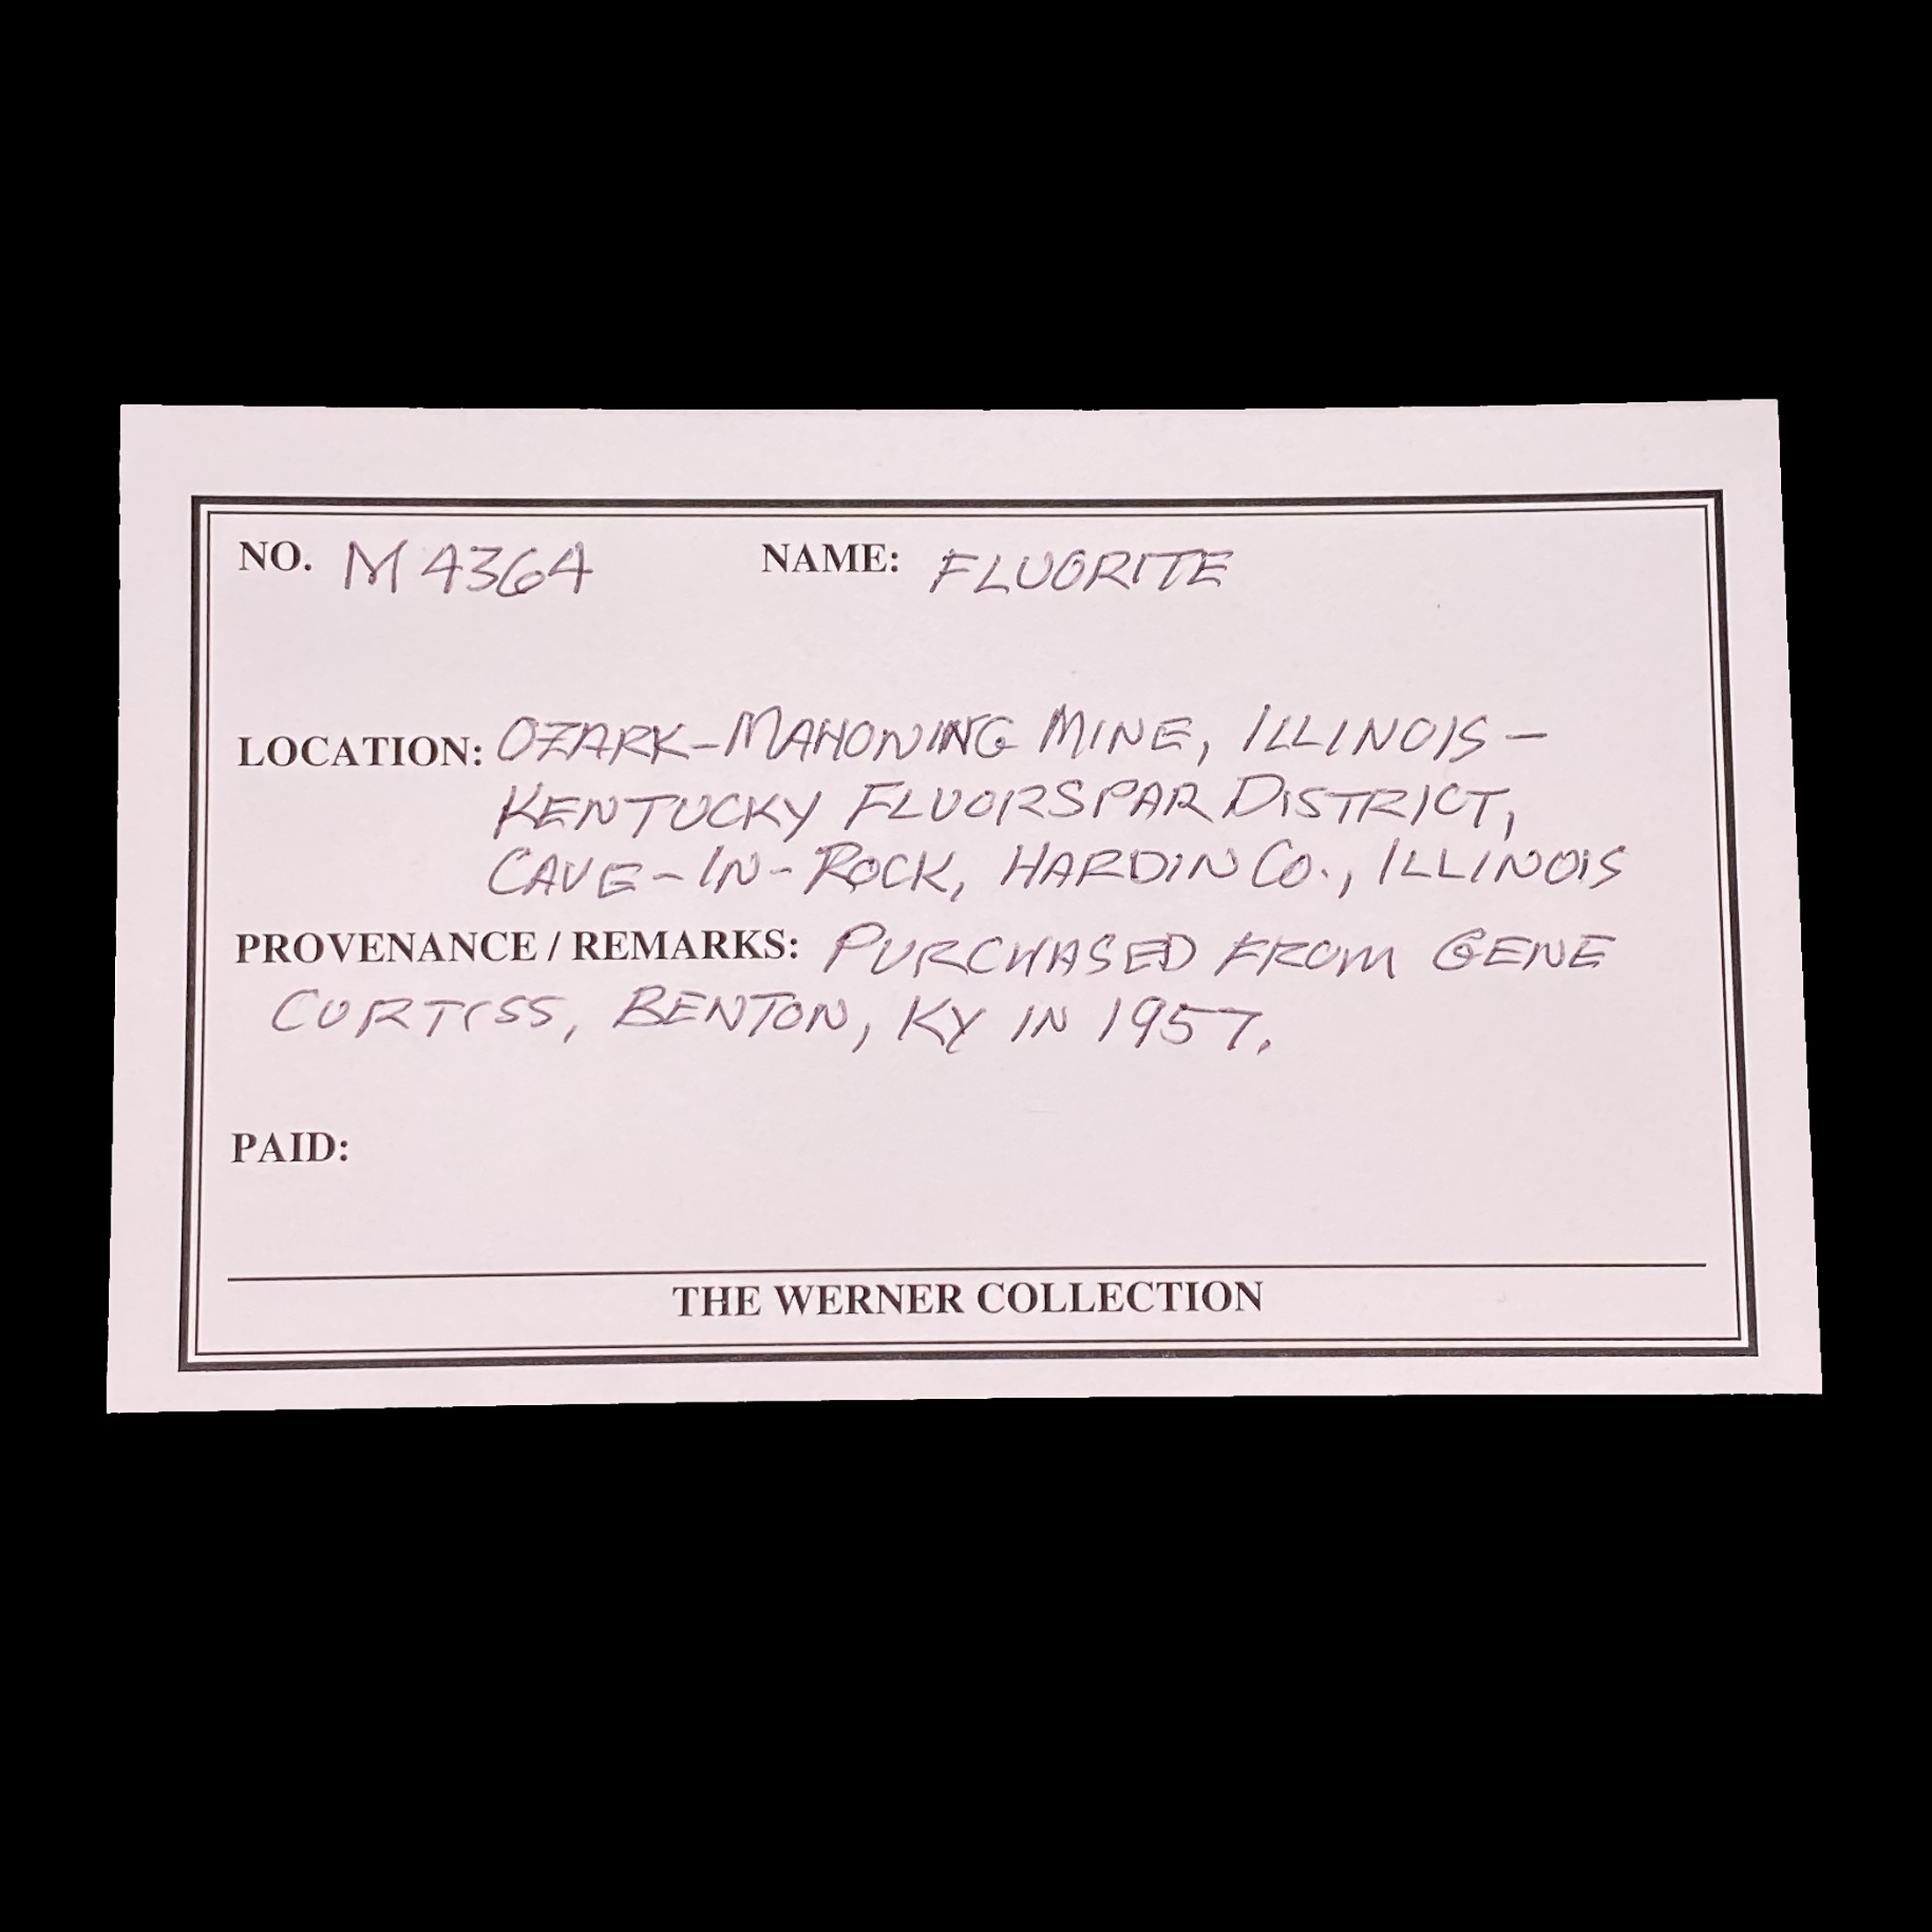 NO. M4364 NAME: FLUORITE
LOCATION: OZARK-MAHONING MINE, ILLINOIS-
KENTUCKY FLUORSPAR DISTRICT,
CAVE-IN-ROCK, HARDIN CO., ILLINOIS
PROVENANCE / REMARKS: PURCHASED FROM GENE
CURTISS, BENTON, KY IN 1957.
PAID:
THE WERNER COLLECTION